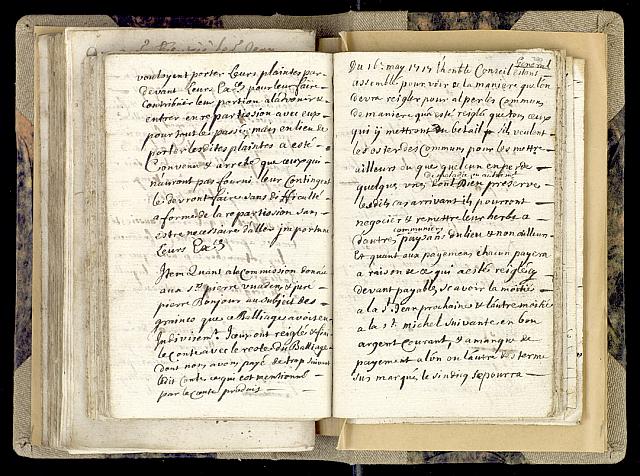 vouloyent porter leurs plaintes par
devant leurs Ex.ces pour leur faire
contribuer leur portion a la d'honir &
entrer en repartission avec eux
pour tout le passé, mais en lieu de
porter lesdites plaintes a esté
Convenu & arreté que ceux qui
n'auront pas fourni leur Contingent
le devront faire sans difficulté
a forme de la repartission sans
estre necessaire d'aller importuner
leurs Ex.ces
Item Quant a la Commission donnée
aux s.rs pierre vuadens & juré
pierre Bonjour au subject des
graines que ce Balliage avoit en
Indivision. Iceux ont reiglé & fini
le conte avec le reste du Balliage
dont nous avons payé de trop suivant
ledit Conte ce qui est mentionné
par le conte produis
General
Du 16.e may 1717 l'honble Conseil estant
assemblé pour voir de la maniere que l'on
devra reigler pour alper les communs
de maniere qu'a esté reiglé que tous ceux
qui y mettront du betail & s'ils veulent
les oster des communs pour les mettre
ailleurs ou que quelcun en perde
de maladie ou autrement
quelques unes dont Dieu preserve
lesdits cas arrivant ils pourront
negocier & remettre leur herbe a
communiers
d'autres paysans du lieu & non d'ailleurs
Et quant aux payemens chacun payera
a raison de ce qui a esté reiglé
devant payable, scavoir la moitié
a la s.t Jean prochaine & l'autre moitié
a la s.t michel suivante en bon
argent courant, & a manque de
payement a l'un ou l'autre des terme
sus marqué, le sindiq se pourra